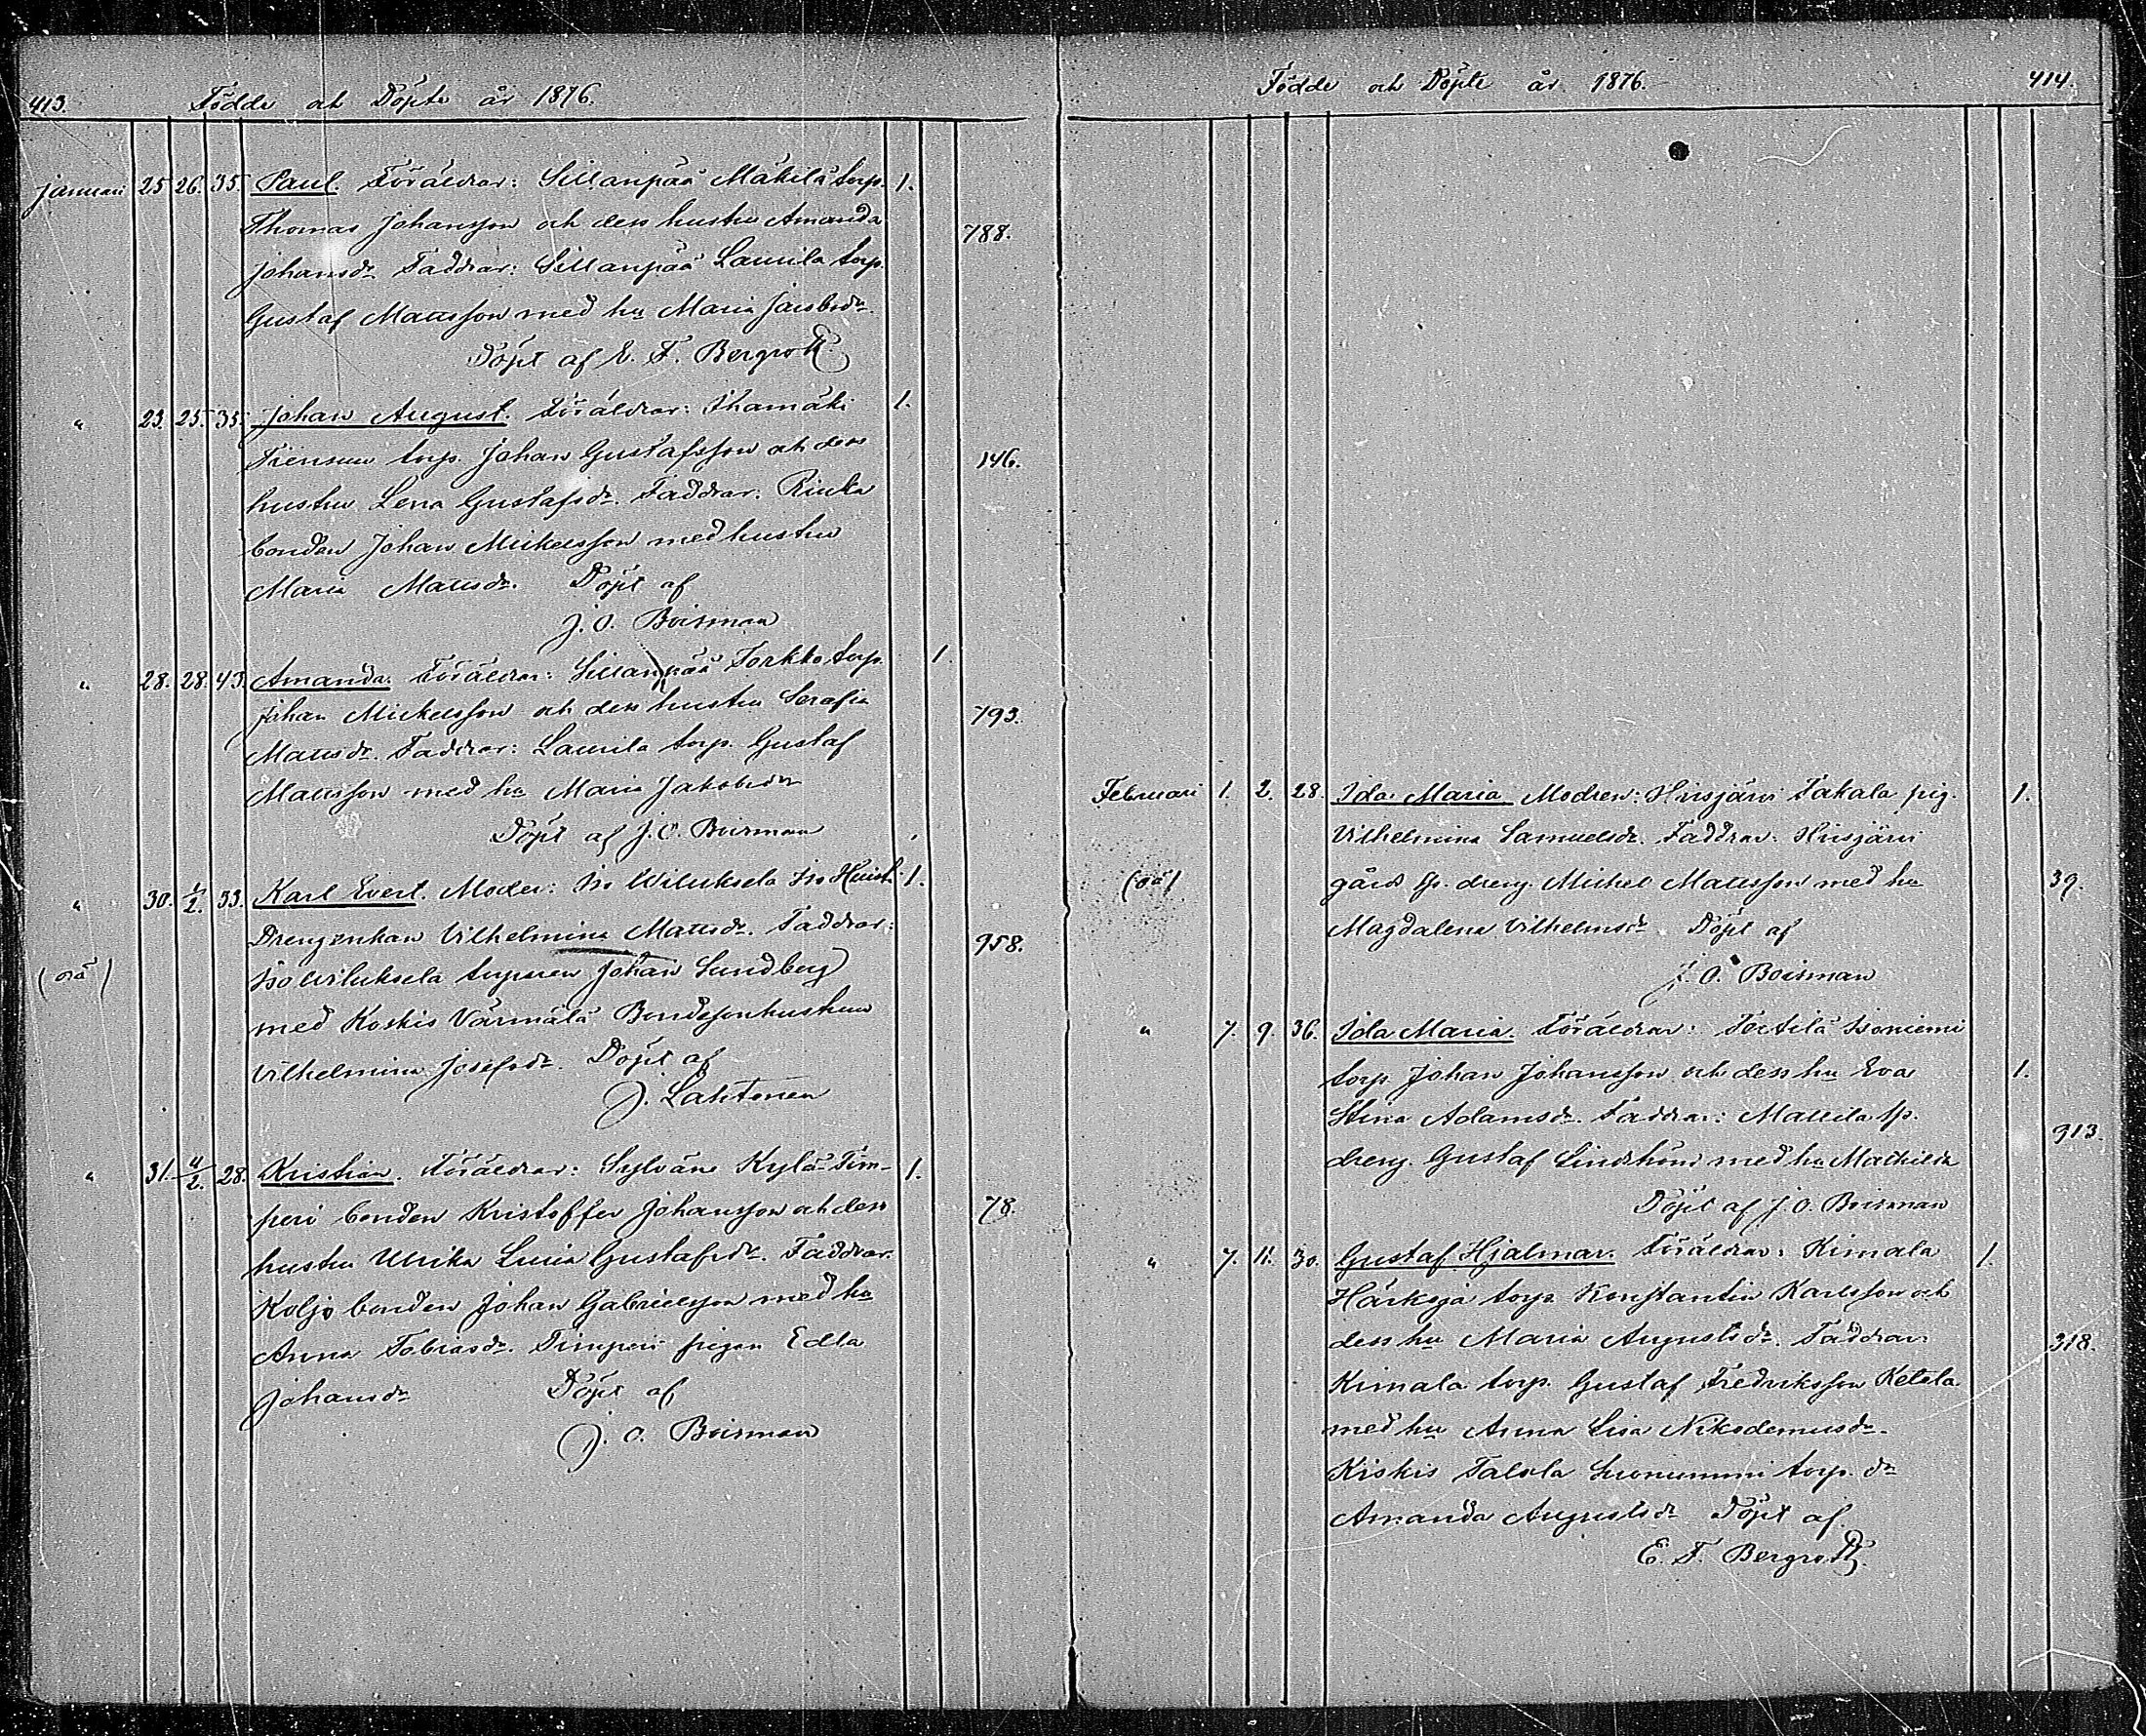 413. Födde och Döpte år 1876.
Januari 25 26. 35. Paul. Föräldrar: Sillanpää Mäkilä torp. 1.
Thomas Johansson och dess hustru Amanda 788.
Johansdr. Faddrar: Sillanpää Laurila torp.
Gustaf Mattsson med hu Maria Jacobsdr.
Döpt af E. F. Bergroth.
" 23. 25. 35. Johan August. Föräldrar: Ihamäki 1.
torp. Johan Gustafsson och dess 146.
hustru Lena Gustafsdr. Faddrar:
bonden Johan Mickelsson med hustru
Maria Mattsdr. Döpt af
J. O. Boisman
" 28. 28. 43. Amanda. Föräldrar: Sillanpää Torkko torp. 1.
Johan Mickelsson och dess hustru Serafia 793.
Mattsdr. Faddrar: Laurila torp. Gustaf
Mattsson med hu Maria Jakobsdr
Döpt af J. O. Boisman
" 30. 1/2. 33. Karl Evert. Moder: Iso Wiluksela Iso 1.
Drengenkan Vilhelmina Mattsdr. Faddrar: 958.
(oä) Iso Wiluksela torparen Johan Sundberg
med Koskis Värmälä Bondesonhustrun
Vilhelmina Josefsdr. Döpt af
J. Lahtonen
" 31. 11/2. 28. Kristian. Föräldrar: Sylväne Kylä-Tim- 1.
peri bonden Kristoffer Johansson och dess 78.
hustru Ulrika Lovisa Gustafsdr. Faddrar.
Koljo bonden Johan Gabrielsson med hu
Anna Tobiasdr. Timperi pigan Edla
Johansdr Döpt af
J. O. Boisman
Födde och Döpte år 1876. 414.
Februari 1. 2. 28. Ida Maria Modren: Hirsjärvi Takala pig. 1.
Vilhelmina Samuelsdr. Faddrar: Hirsjärvi
(oä) gård fr. dreng. Michel Mattsson med hu 39.
Magdalena Vilhelmsdr Döpt af
J. O. Boisman
" 7. 9. 36. Ida Maria. Föräldrar: Tertilä Isoniemi
torp. Johan Johansson och dess hu Eva 1.
Stina Adamsdr. Faddrar: Mattila fr. 913.
dreng. Gustaf Lindström med hu Mathilda
Döpt af J. O. Boisman
" 7. 11. 30. Gustaf Hjalmar. Föräldrar: Kimala 1.
Härkoja torp. Konstantin Karlsson och
dess hu Maria Augustsdr. Faddrar: 318.
Kimala torp. Gustaf Fredriksson Ketola
med hu Anna Lisa Nikodemusdr.
Kiskis Talola torp. dr
Amanda Augustsdr Döpt af.
E. F. Bergroth.